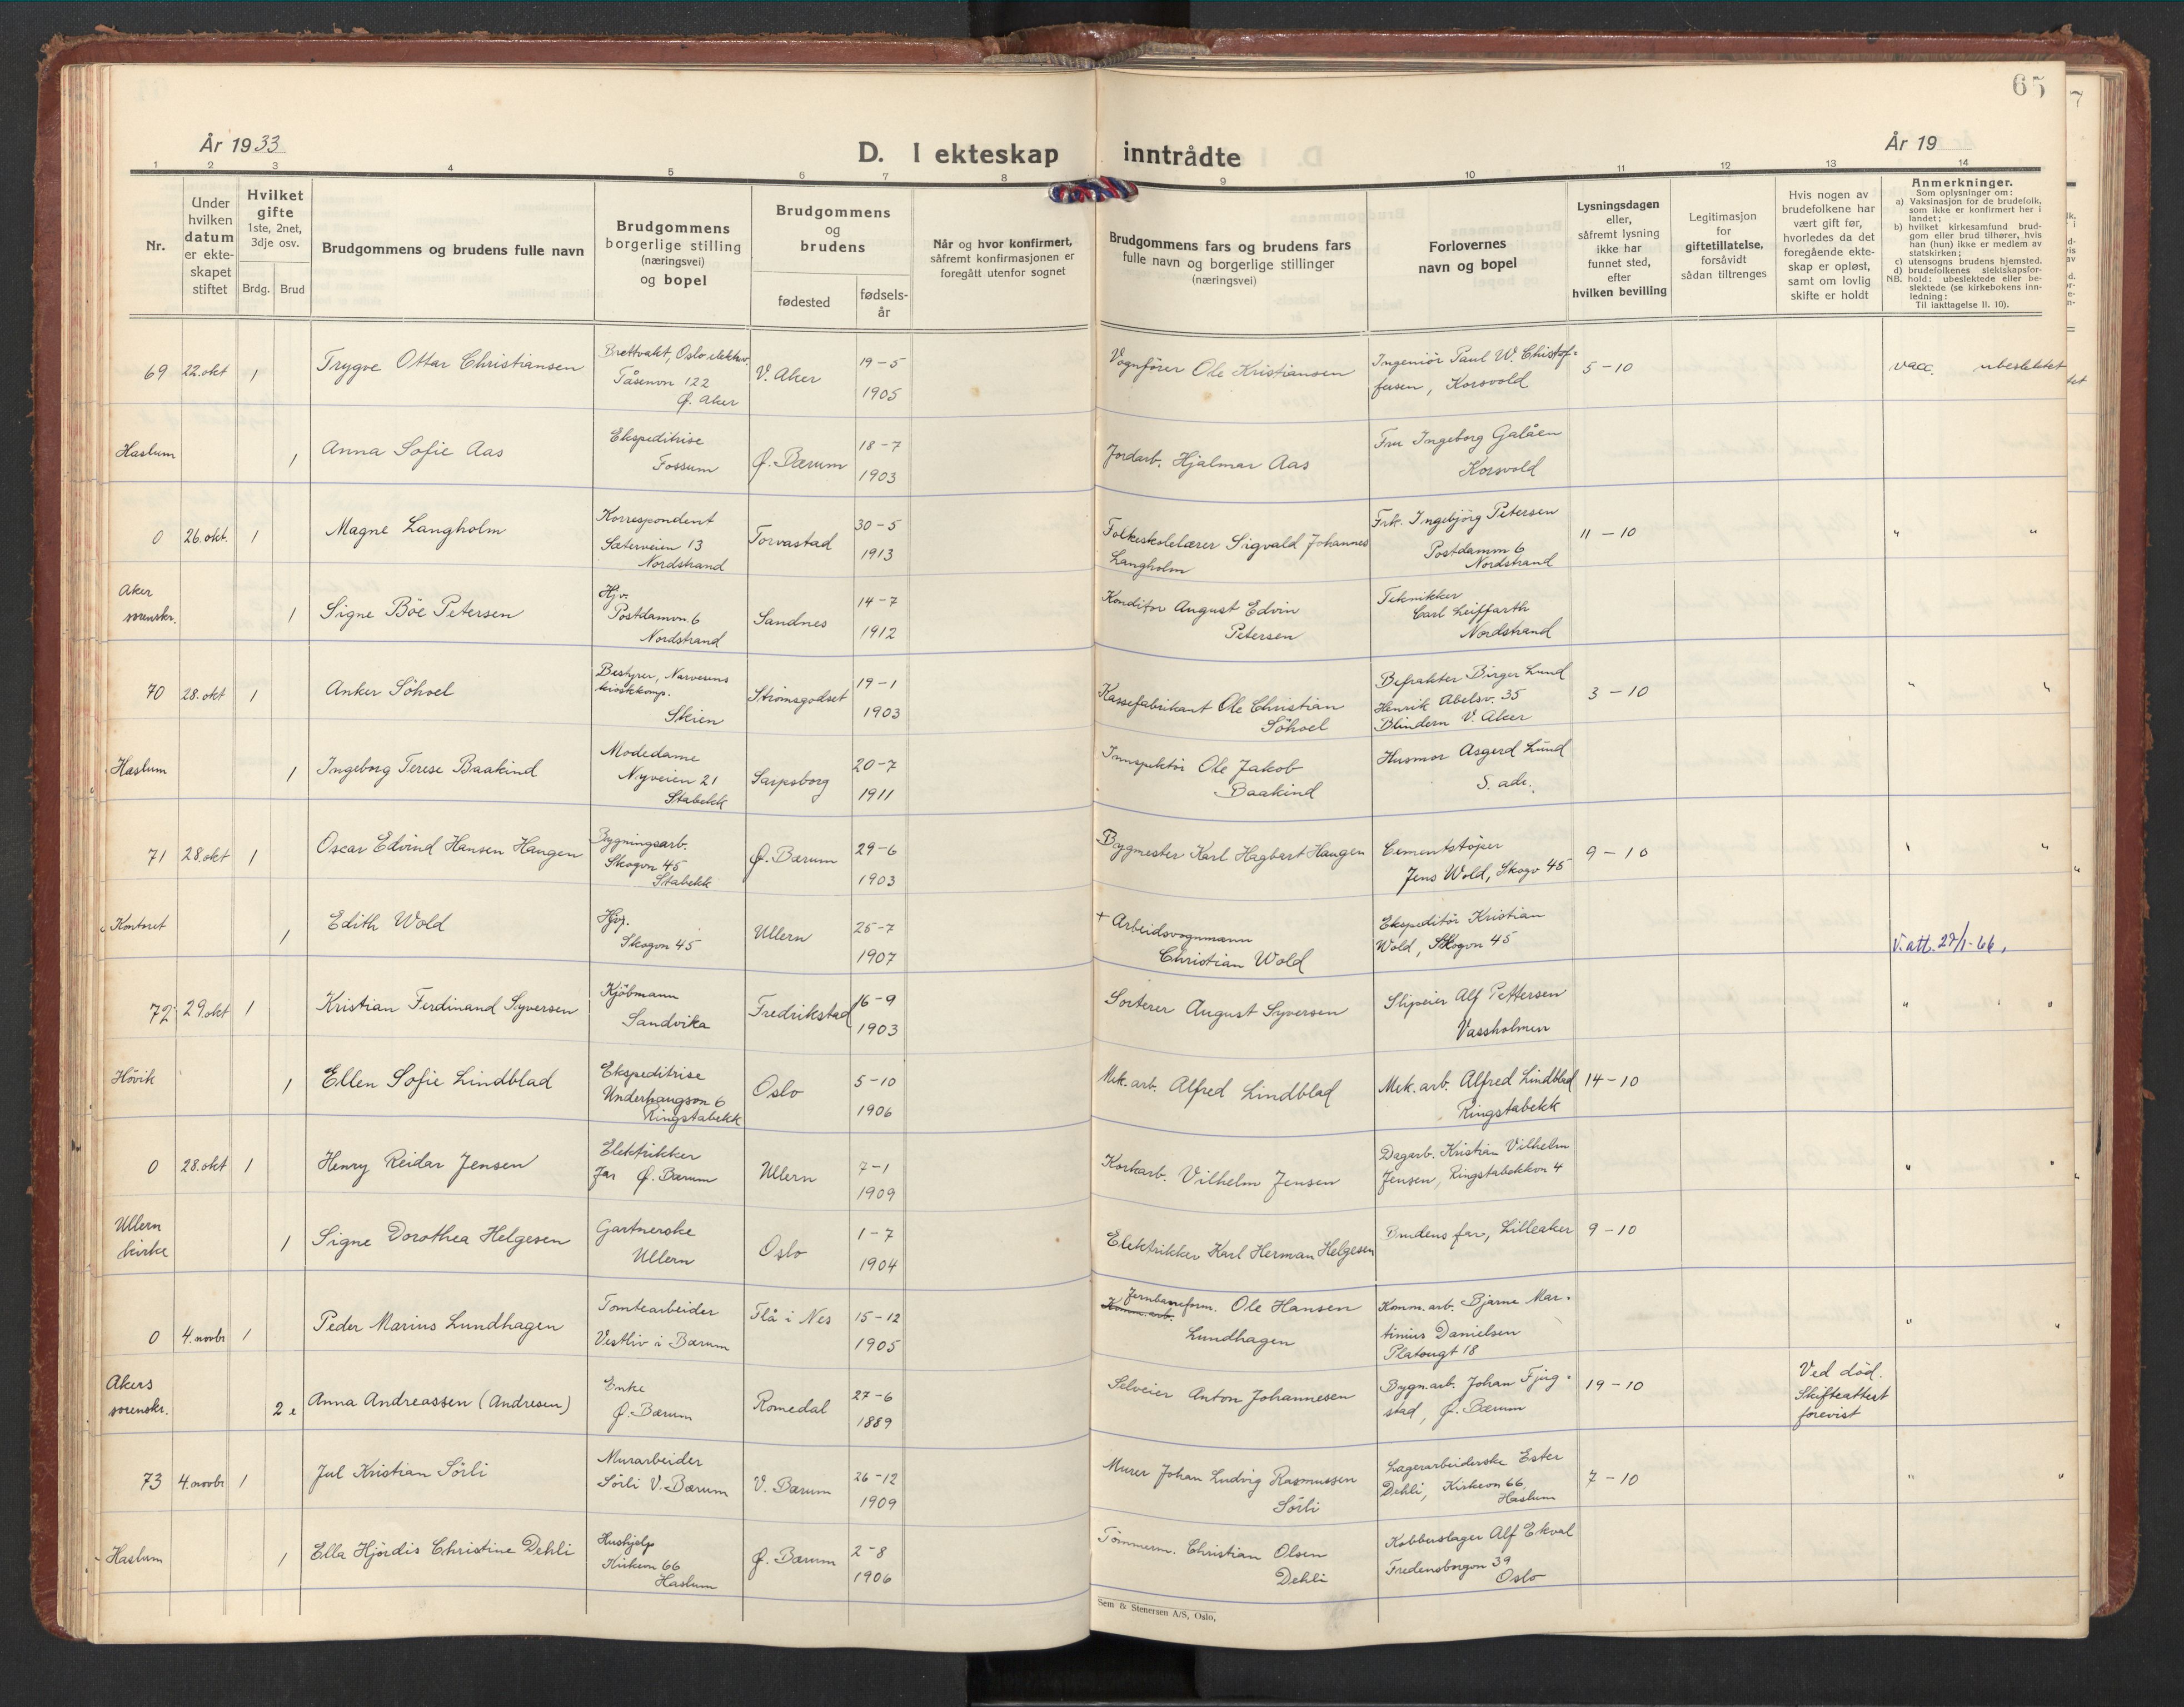 65
År 1933
D. I ekteskap inntrådte
År 19
1 2 3 4 5 6 7 8 9 10 11 12 13 14
Nr.
Under hvilken datum er ekteskapet stiftet
Hvilket gifte 1ste, 2net, 3dje osv.
Brdg. Brud
Brudgommens og brudens fulle navn
Brudgommens borgerlige stilling (næringsvei) og bopel
Brudgommens og brudens
fødested
fødselsår
Når og hvor konfirmert, såfremt konfirmasjonen er foregått utenfor sognet
Brudgommens fars og brudens fars fulle navn og borgerlige stillinger (næringsvei)
Forlovernes navn og bopel
Lysningsdagen eller, såfremt lysning ikke har funnet sted, efter hvilken bevilling
Legitimasjon for giftetillatelse, forsåvidt sådan tiltrenges
Hvis nogen av brudefolkene har vært gift før, hvorledes da det foregående ekteskap er opløst, samt om lovlig skifte er holdt
Anmerkninger.
Som oplysninger om:
a) Vaksinasjon for de brudefolk, som ikke er konfirmert her i landet;
b) hvilket kirkesamfund brudgom eller brud tilhører, hvis han (hun) ikke er medlem av statskirken;
c) utensogns brudens hjemsted.
d) brudefolkenes slektskapsforhold: ubeslektede eller beslektede (se kirkebokens innledning:
NB.
Til iakttagelse II. 10).
69 22.okt 1 Trygve Ottar Christiansen Brettvakt, Oslo elektv. Tåsenvn 122 Ø. Aker V. Aker 19-5 1905 Vognfører Ole Kristiansen Ingeniör Paul W. Christoffersen, Korsvold 5-10 vacc. ubeslektet
Haslum 1 Anna Sofie Aas Ekspeditrise Fossum Ø. Bærum 18-7 1903 Jordarb. Hjalmar Aas Fru Ingeborg Galåen Korsvold
0 26.okt. 1 Magne Langholm Korrespondent Sæterveien 13 Nordstrand Torvastad 30-5 1913 Folkeskolelærer Sigvald Johannes Langholm Frk. Ingebjörg Petersen Postdamm 6 Nordstrand 11-10 " "
Aker sorenskr. 1 Signe Böe Petersen Hjv. Postdamvn. 6 Nordstrand Sandnes 14-7 1912 Konditor August Edvin Petersen Teknikker Carl Leiffarth Nordstrand
70 28.okt 1 Anker Söhoel Bestyrer, Narvesens kioskkomp. Skien Strömsgodset 19-1 1903 Kassefabrikant Ole Christian Söhoel Befrakter Birger Lund Henrik Abelsv. 35 Blindern V. Aker 3-10 " "
Haslum 1 Ingeborg Terese Baakind Modedame Nyveien 21 Stabekk Sarpsborg 20-7 1911 Innspektör Ole Jakob Baakind Husmor Asgerd Lund S. adr.
71 28.okt 1 Oscar Edvind Hansen Haugen Bygningsarb. Skogvn 45 Stabekk Ø. Bærum 29-6 1903 Bygmester Karl Hagbart Haugen Cementstöper Jens Wold, Skogv 45 9-10 " "
Kontoret 1 Edith Wold Hjv. Skogvn 45 Ullern 25-7 1907 + Arbeidsvognmann Christian Wold Ekspeditör Kristian Wold, Skogvn 45 V. att. 27/1-66.
72 29.okt 1 Kristian Ferdinand Syversen Kjöbmann Sandvika Fredrikstad 16-9 1903 Sorterer August Syversen Slipeier Alf Pettersen Vassholmen " "
Hövik 1 Ellen Sofie Lindblad Ekspeditrise Underhaugsvn 6 Ringstabekk Oslo 5-10 1906 Mek. arb. Alfred Lindblad Mek. arb. Alfred Lindblad Ringstabekk 14-10
0 28.okt 1 Henry Reidar Jensen Elektrikker Jar Ø. Bærum Ullern 7-1 1909 Korkarb. Vilhelm Jensen Dagarb. Kristian Vilhelm Jensen, Ringstabekkvn 4 " "
Ullern kirke 1 Signe Dorothea Helgesen Gartnerske Ullern Oslo 1-7 1904 Elektrikker Karl Herman Helgesen Brudens far, Lilleaker 9-10
0 4.novbr 1 Peder Marius Lundhagen Tomtearbeider Vestliv i Bærum Flå i Nes 15-12 1905 Komm.arb. Jernbaneform. Ole Hansen Lundhagen Komm. arb. Bjarne Martinius Danielsen Platougt 18 " "
Akers sorenskr. 2 Anna Andreassen (Andresen) Enke Ø. Bærum Romedal 27-6 1889 Selveier Anton Johannesen Bygn.arb. Johan Fjugstad, Ø. Bærum 19-10 Ved död. Skifteattest forevist
73 4.novbr 1 Jul Kristian Sörli Murarbeider Sörli V. Bærum V. Bærum 26-12 1909 Murer Johan Ludvig Rasmussen Sörli Lagerarbeiderske Ester Dehli, Kirkevn 66, Haslum 7-10 " "
Haslum 1 Ella Hjördis Christine Dehli Hushjelp Kirkevn 66 Haslum Ø. Bærum 2-8 1906 Tömmerm. Christian Olsen Dehli Kobberslager Alf Ekval Fredensborgvn 39 Oslo
Sem & Stenersen A/S, Oslo.